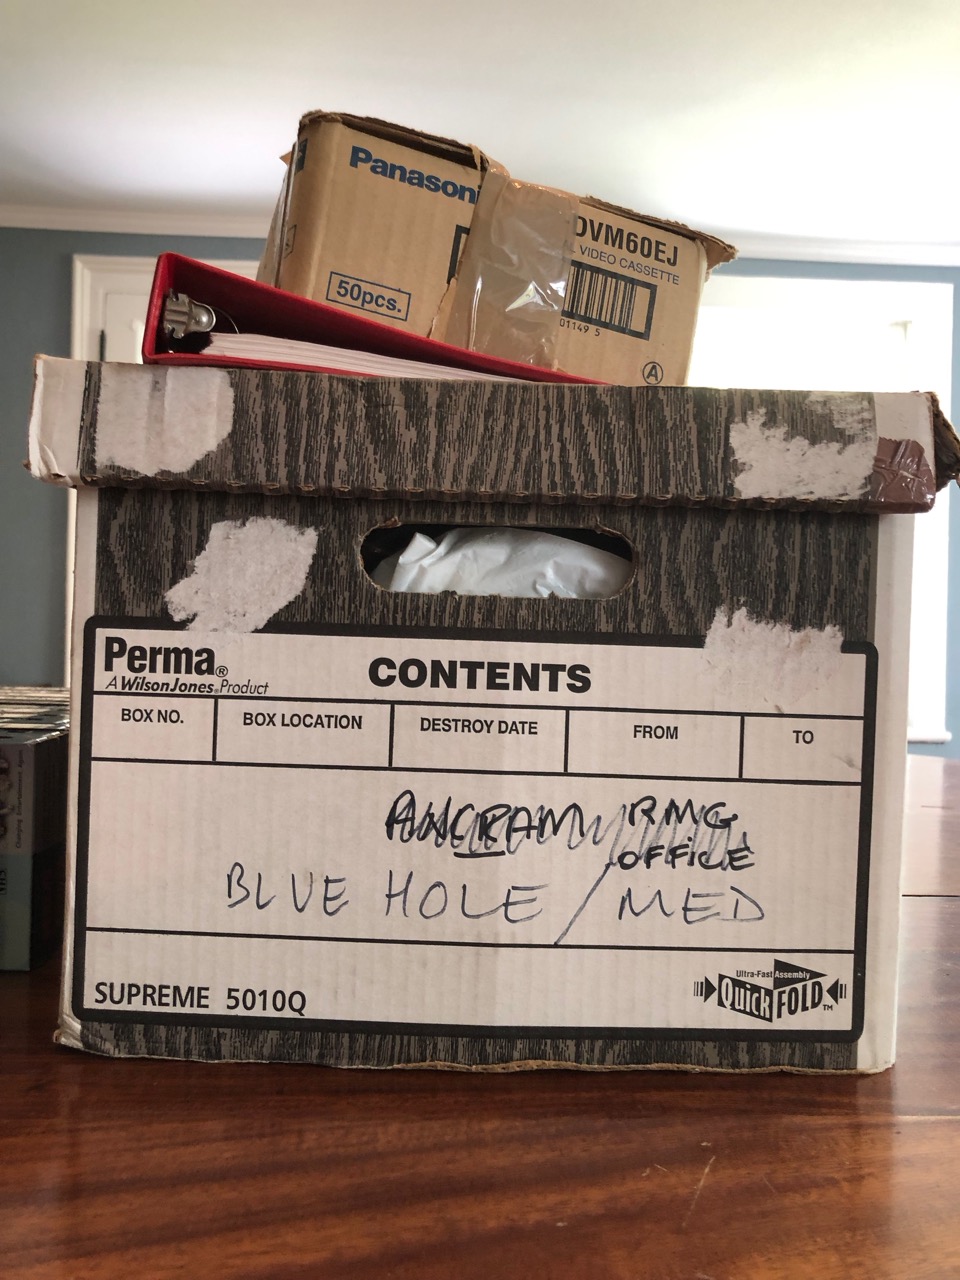 Panasoni
DVM60EJ
L VIDEO CASSETTE
50pcs.
01149 5
A
Perma®
A WilsonJones® Product
CONTENTS
BOX NO.
BOX LOCATION
DESTROY DATE
FROM
TO
ANCRAM / RMG
OFFICE
BLUE HOLE / MED
SUPREME 5010Q
Ultra-Fast Assembly
Quick FOLD™